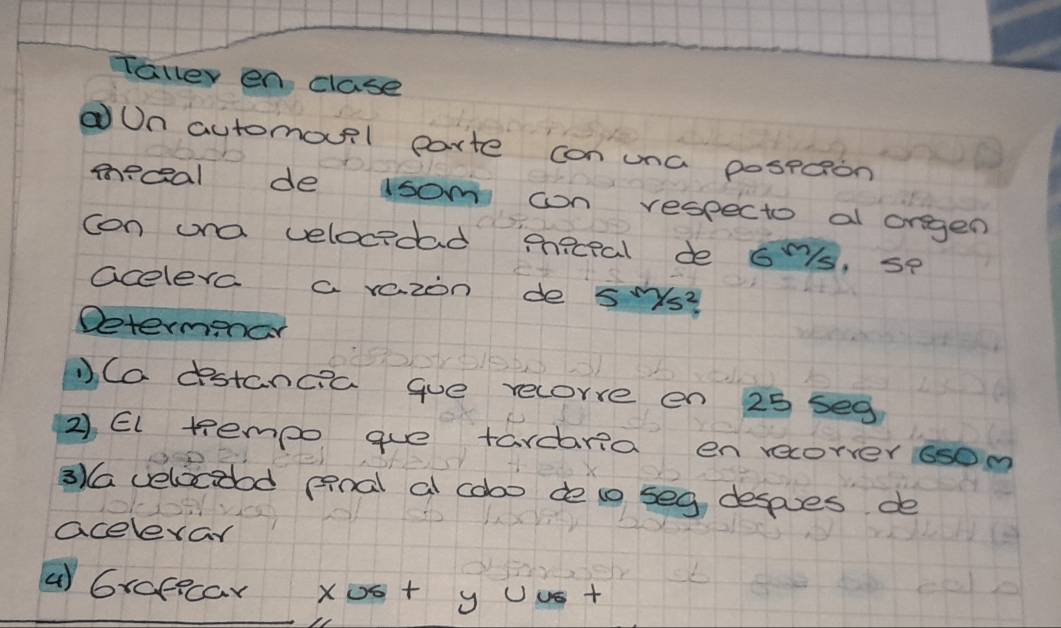 Taller en clase
a) Un automovil parte con una posición
inicial de 150m con respecto al origen
con una velocidad inicial de 6 m/s, se
acelera a razón de 5 m/s².
Determinar
1) La distancia que recorre en 25 seg
2) El tiempo que tardaria en recorrer 650m
3) La velocidad final al cabo de 10 seg despues de
acelerar
4) Graficar x vs t y v vs t